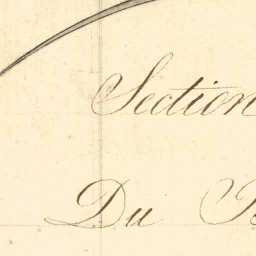 Section
Du